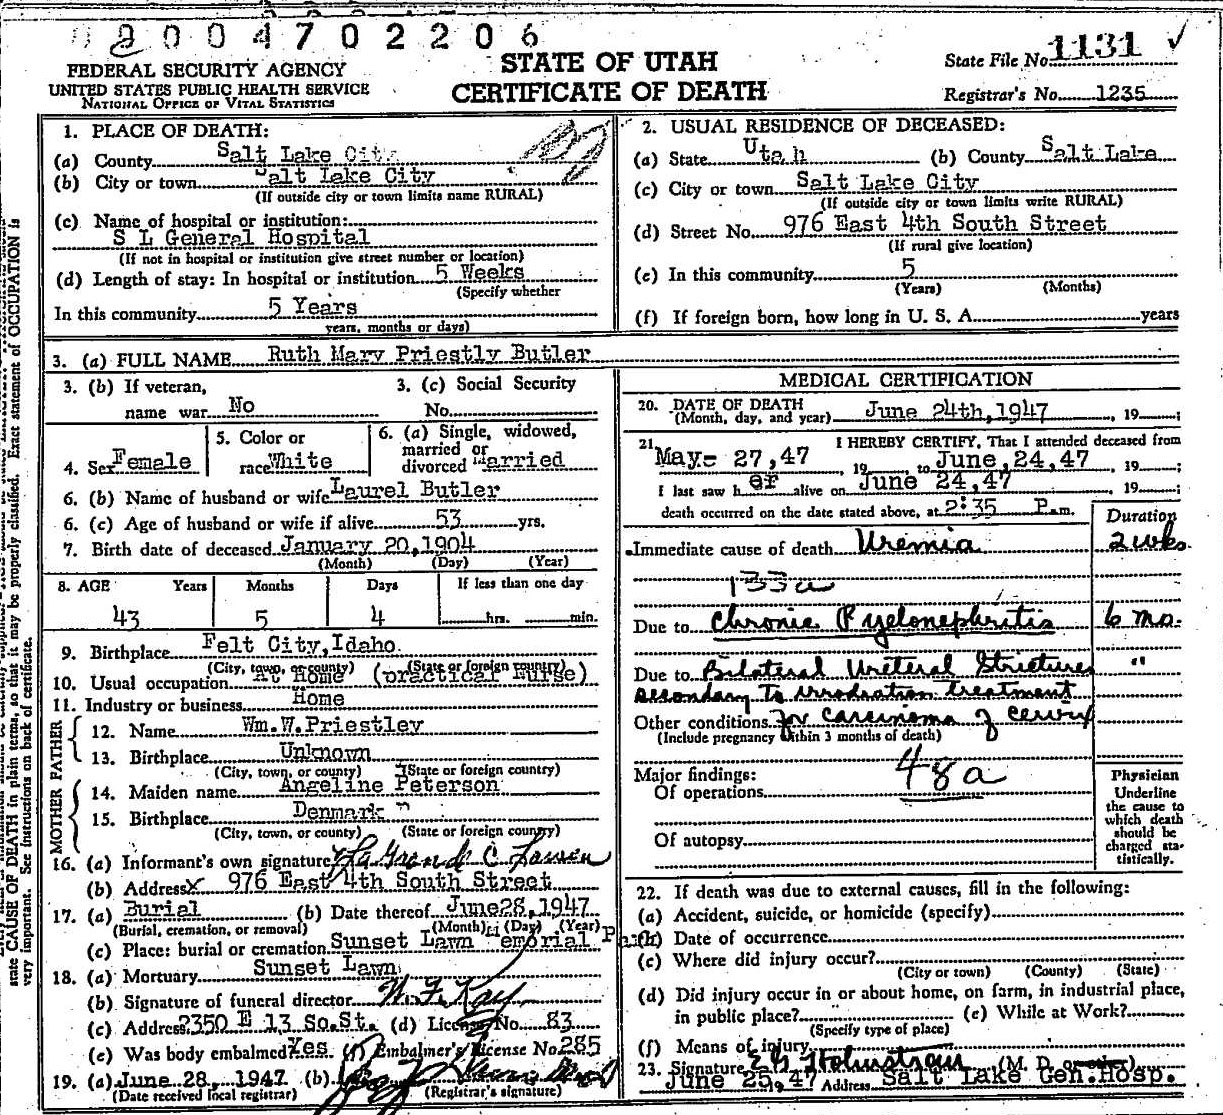 0 2 0 0 4 7 0 2 2 0 6
FEDERAL SECURITY AGENCY
UNITED STATES PUBLIC HEALTH SERVICE
NATIONAL OFFICE OF VITAL STATISTICS
STATE OF UTAH
CERTIFICATE OF DEATH
State File No. 1131
Registrar's No. 1235
1. PLACE OF DEATH:
(a) County Salt Lake City
(b) City or town Salt Lake City
(If outside city or town limits name RURAL)
(c) Name of hospital or institution:
S L General Hospital
(If not in hospital or institution give street number or location)
(d) Length of stay: In hospital or institution 5 Weeks
(Specify whether
In this community 5 Years
years, months or days)
2. USUAL RESIDENCE OF DECEASED:
(a) State Utah (b) County Salt Lake
(c) City or town Salt Lake City
(If outside city or town limits write RURAL)
(d) Street No. 976 East 4th South Street
(If rural give location)
(e) In this community 5
(Years) (Months)
(f) If foreign born, how long in U. S. A. years
3. (a) FULL NAME Ruth Mary Priestly Butler
3. (b) If veteran, name war No
3. (c) Social Security No.
4. Sex Female
5. Color or race White
6. (a) Single, widowed, married or divorced Married
6. (b) Name of husband or wife Laurel Butler
6. (c) Age of husband or wife if alive 53 yrs.
7. Birth date of deceased January 20, 1904
(Month) (Day) (Year)
8. AGE Years Months Days If less than one day
43 5 4 hrs. min.
9. Birthplace Felt City, Idaho
(City, town, or county) (State or foreign country)
10. Usual occupation At Home (practical Nurse)
11. Industry or business Home
FATHER
12. Name Wm. W. Priestley
13. Birthplace Unknown
(City, town, or county) (State or foreign country)
MOTHER
14. Maiden name Angeline Peterson
15. Birthplace Denmark "
(City, town, or county) (State or foreign country)
16. (a) Informant's own signature LaGrande C Larsen
(b) Address X 976 East 4th South Street
17. (a) Burial (b) Date thereof June 28, 1947
(Burial, cremation, or removal) (Month) (Day) (Year)
(c) Place: burial or cremation Sunset Lawn Memorial Park
18. (a) Mortuary Sunset Lawn
(b) Signature of funeral director W. F. Kay
(c) Address 2350 E 13 So. St. (d) License No. 83
(e) Was body embalmed? Yes (f) Embalmer's License No. 285
19. (a) June 28, 1947 (b)
(Date received local registrar) (Registrar's signature)
MEDICAL CERTIFICATION
20. DATE OF DEATH June 24th, 1947, 19 ;
(Month, day, and year)
21. I HEREBY CERTIFY, That I attended deceased from
May- 27, 47 19 , to June, 24, 47, 19 ;
I last saw her alive on June 24, 47, 19 ;
death occurred on the date stated above, at 2:35 P. m.
Duration
Immediate cause of death Uremia 2 wks.
133a
Due to Chronic Pyelonephritis 6 mo.
Due to Bilateral Ureteral Strictures "
secondary to irradiation treatment
Other conditions for carcinoma of cervix
(Include pregnancy within 3 months of death)
Major findings: 48a
Of operations
Of autopsy
Physician
Underline
the cause to
which death
should be
charged sta-
tistically.
22. If death was due to external causes, fill in the following:
(a) Accident, suicide, or homicide (specify)
(b) Date of occurrence
(c) Where did injury occur?
(City or town) (County) (State)
(d) Did injury occur in or about home, on farm, in industrial place,
in public place? (e) While at Work?
(Specify type of place)
(f) Means of injury
23. Signature (M. D. or other)
June 25, 47 Address Salt Lake Gen. Hosp.
state CAUSE OF DEATH in plain terms, so that it may be properly classified. Exact statement of OCCUPATION is
very important. See instructions on back of certificate.